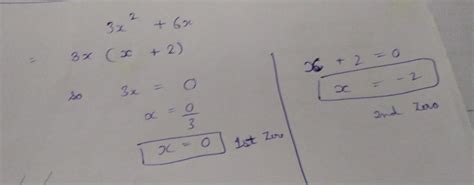 3x² + 6x
= 3x (x + 2)
so 3x = 0
x = 0/3
x = 0 1st Zero
x + 2 = 0
x = -2
2nd Zero